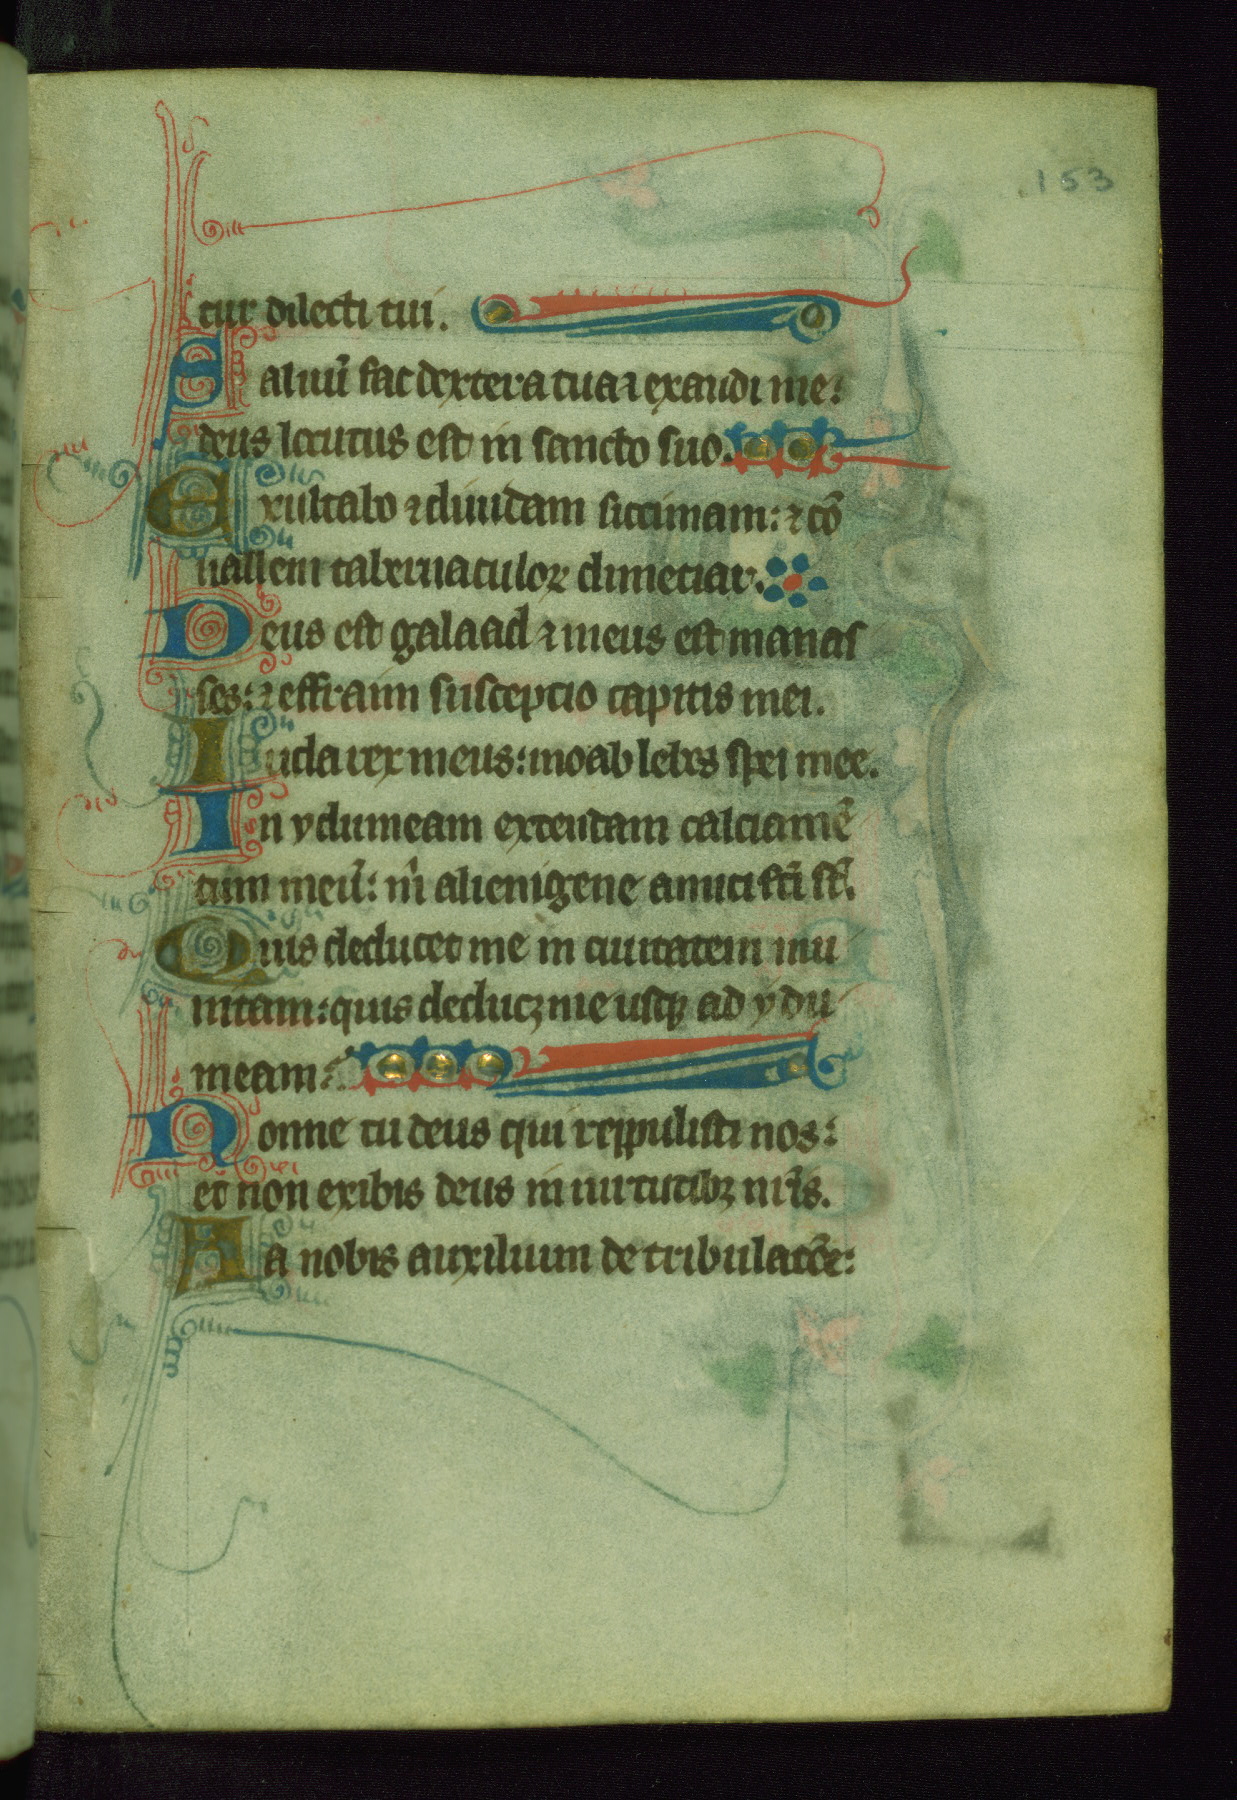 153
tur dilecti tui.
Saluū fac dextera tua ⁊ exaudi me:
deus locutus est in sancto suo.
Exultabo ⁊ diuidam siccimam: ⁊ cō
uallem tabernaculoꝝ dimetiar.
Deus est galaad ⁊ meus est manas
ses: ⁊ effraim susceptio capitis mei.
Iuda rex meus: moab lebes spei mee.
In ydumeam extendam calciamē
tum meū: m̄ alienigene amici sc̄i st̄.
Quis deducet me in ciuitatem mu
nitam: quis deducꝫ me usqꝫ ad ydu
meam:
Nonne tu deus qui reppulisti nos:
et non exibis deus in uirtutibꝫ nr̄is.
Da nobis auxilium de tribulatōe: